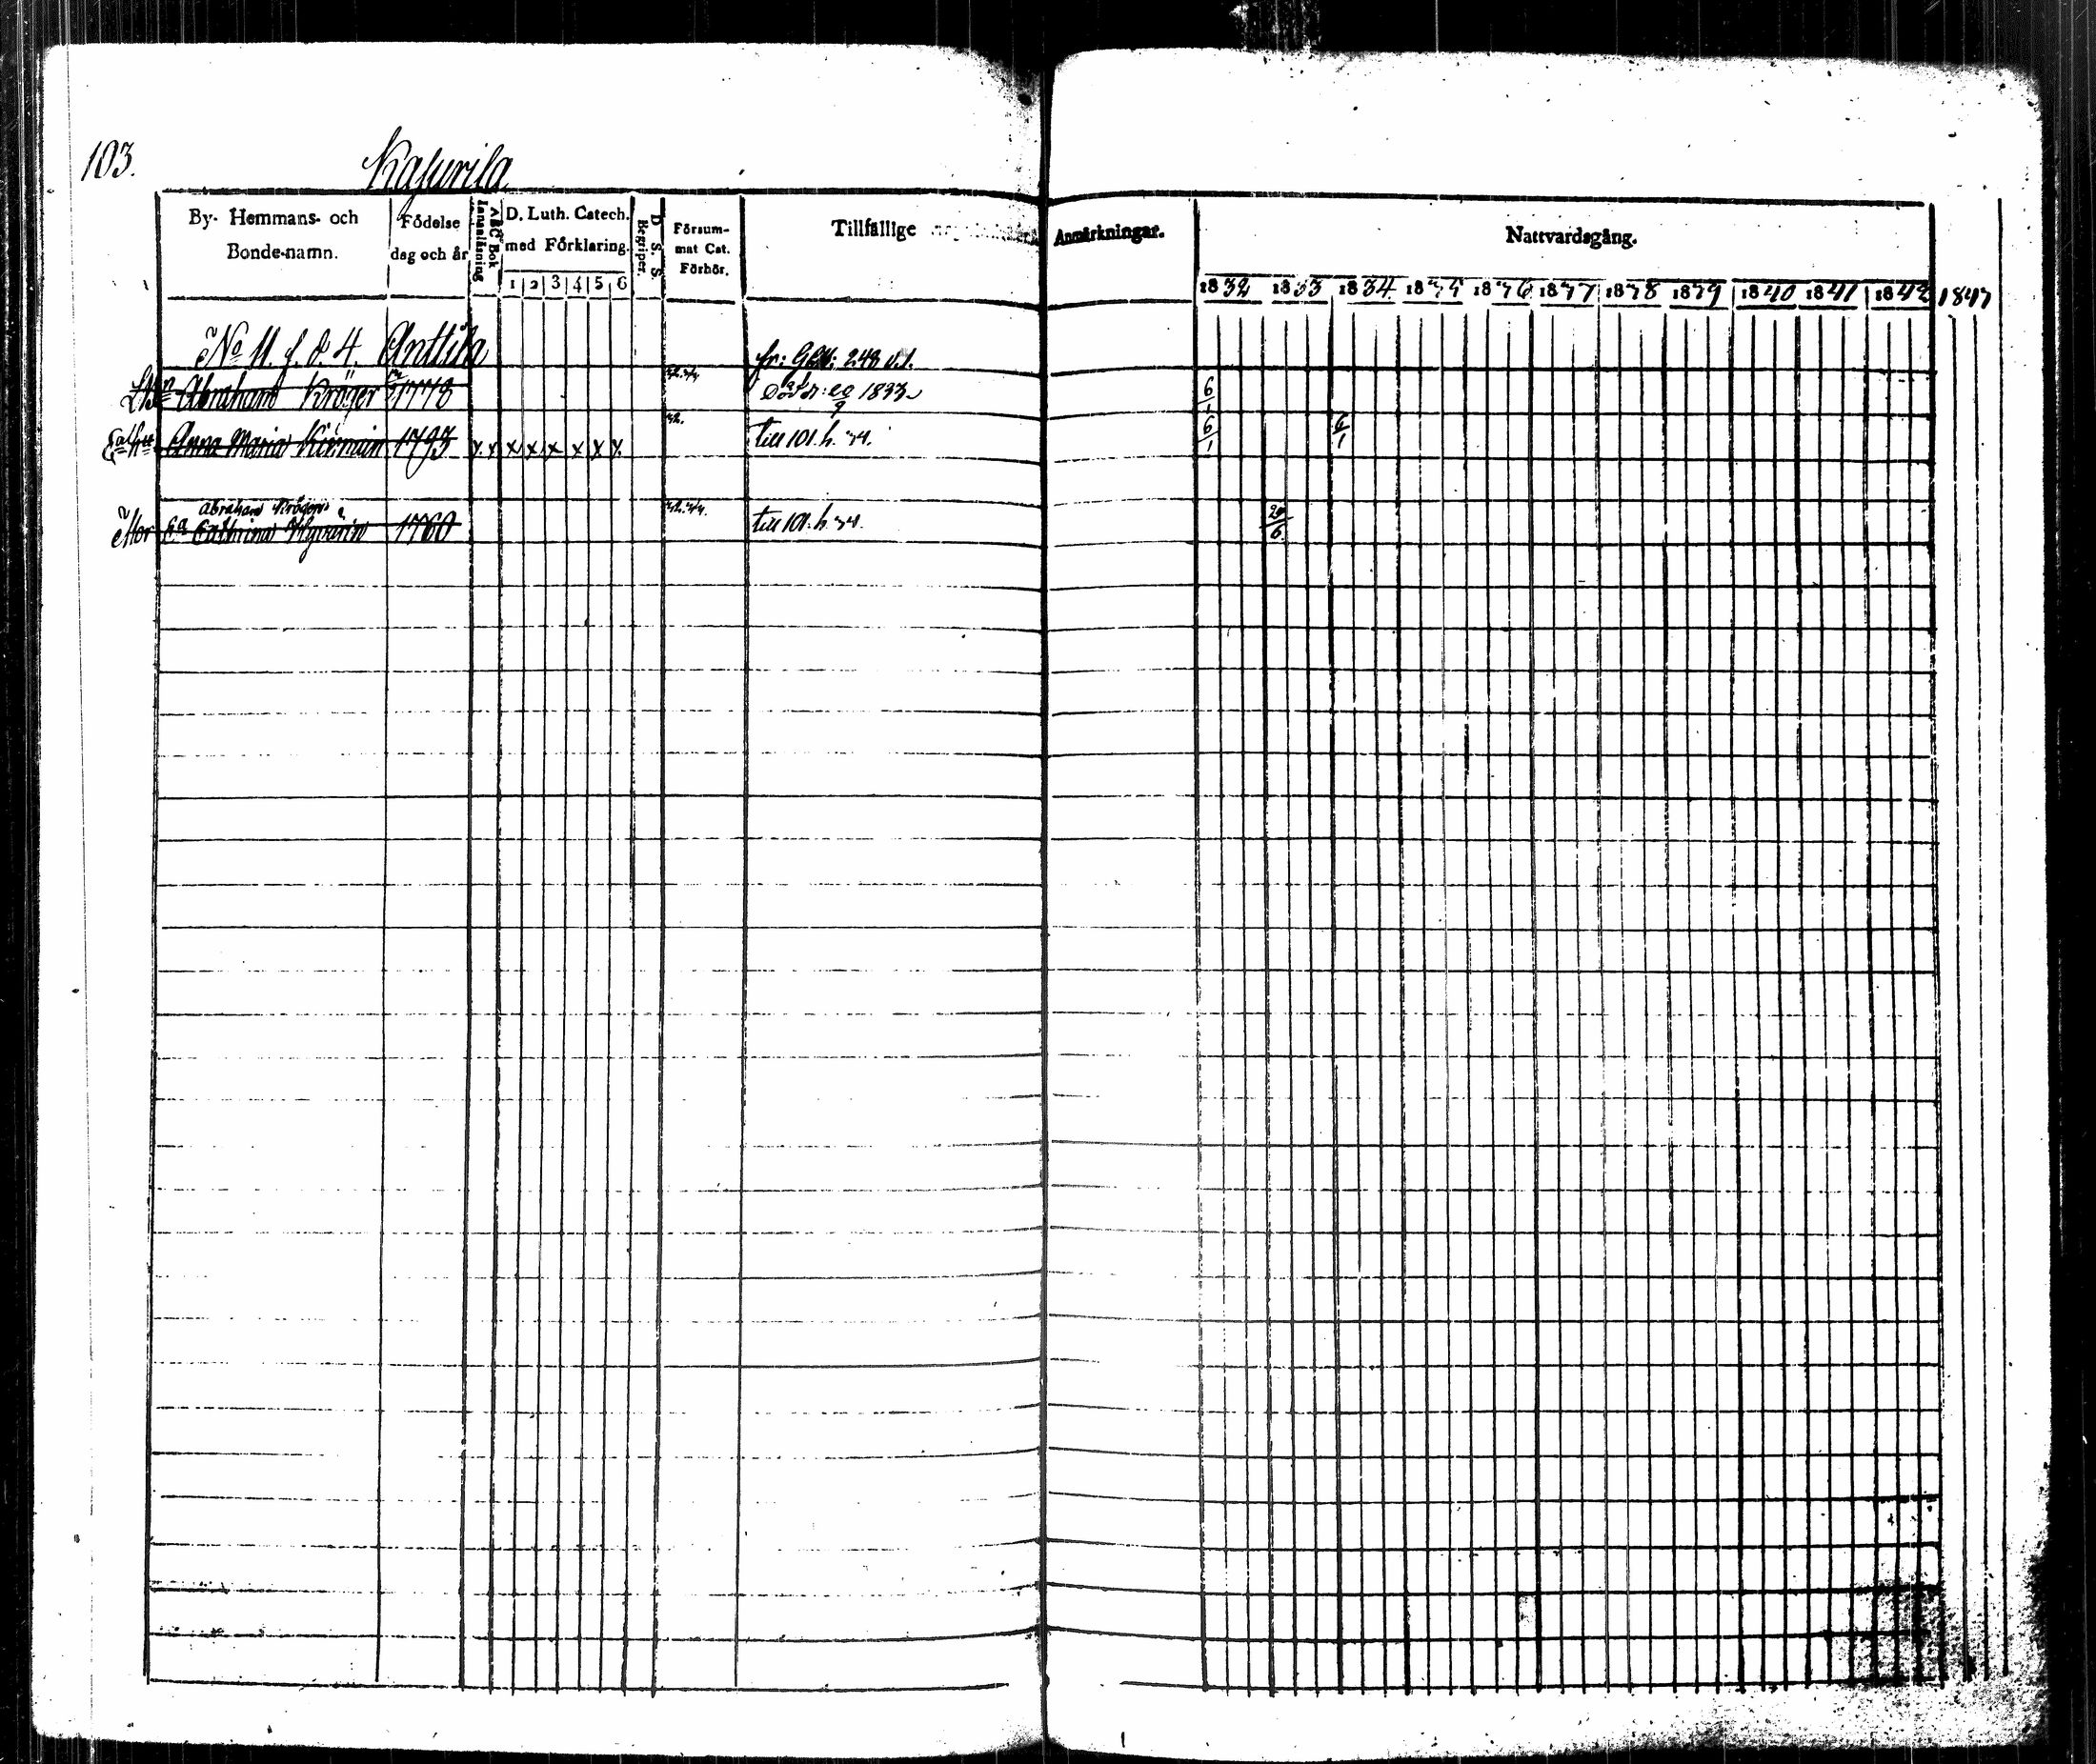 103.
Kasurila
By- Hemmans- och Bonde-namn.
Födelse dag och år
ABC Bok Innanläsning
D. Luth. Catech. med Förklaring.
1 2 3 4 5 6
D. S. S. Begriper.
Försum- mat Cat. Förhör.
Tillfällige Anmärkningar.
Nattvardsgång.
1832 1833 1834 1835 1836 1837 1838 1839 1840 1841 1842 1843
No 11. f. d. 4. Anttila
fr: 248 v. 1.
Abraham Kröger 1778 1833 6/1
Anna Maria 1793 x x x x x x x x till 101. h. 34. 6/1 6/1
Abraham Krögers
Mor Ea Cathrina Hyvärin 1760 till 101. h. 34. 29/6